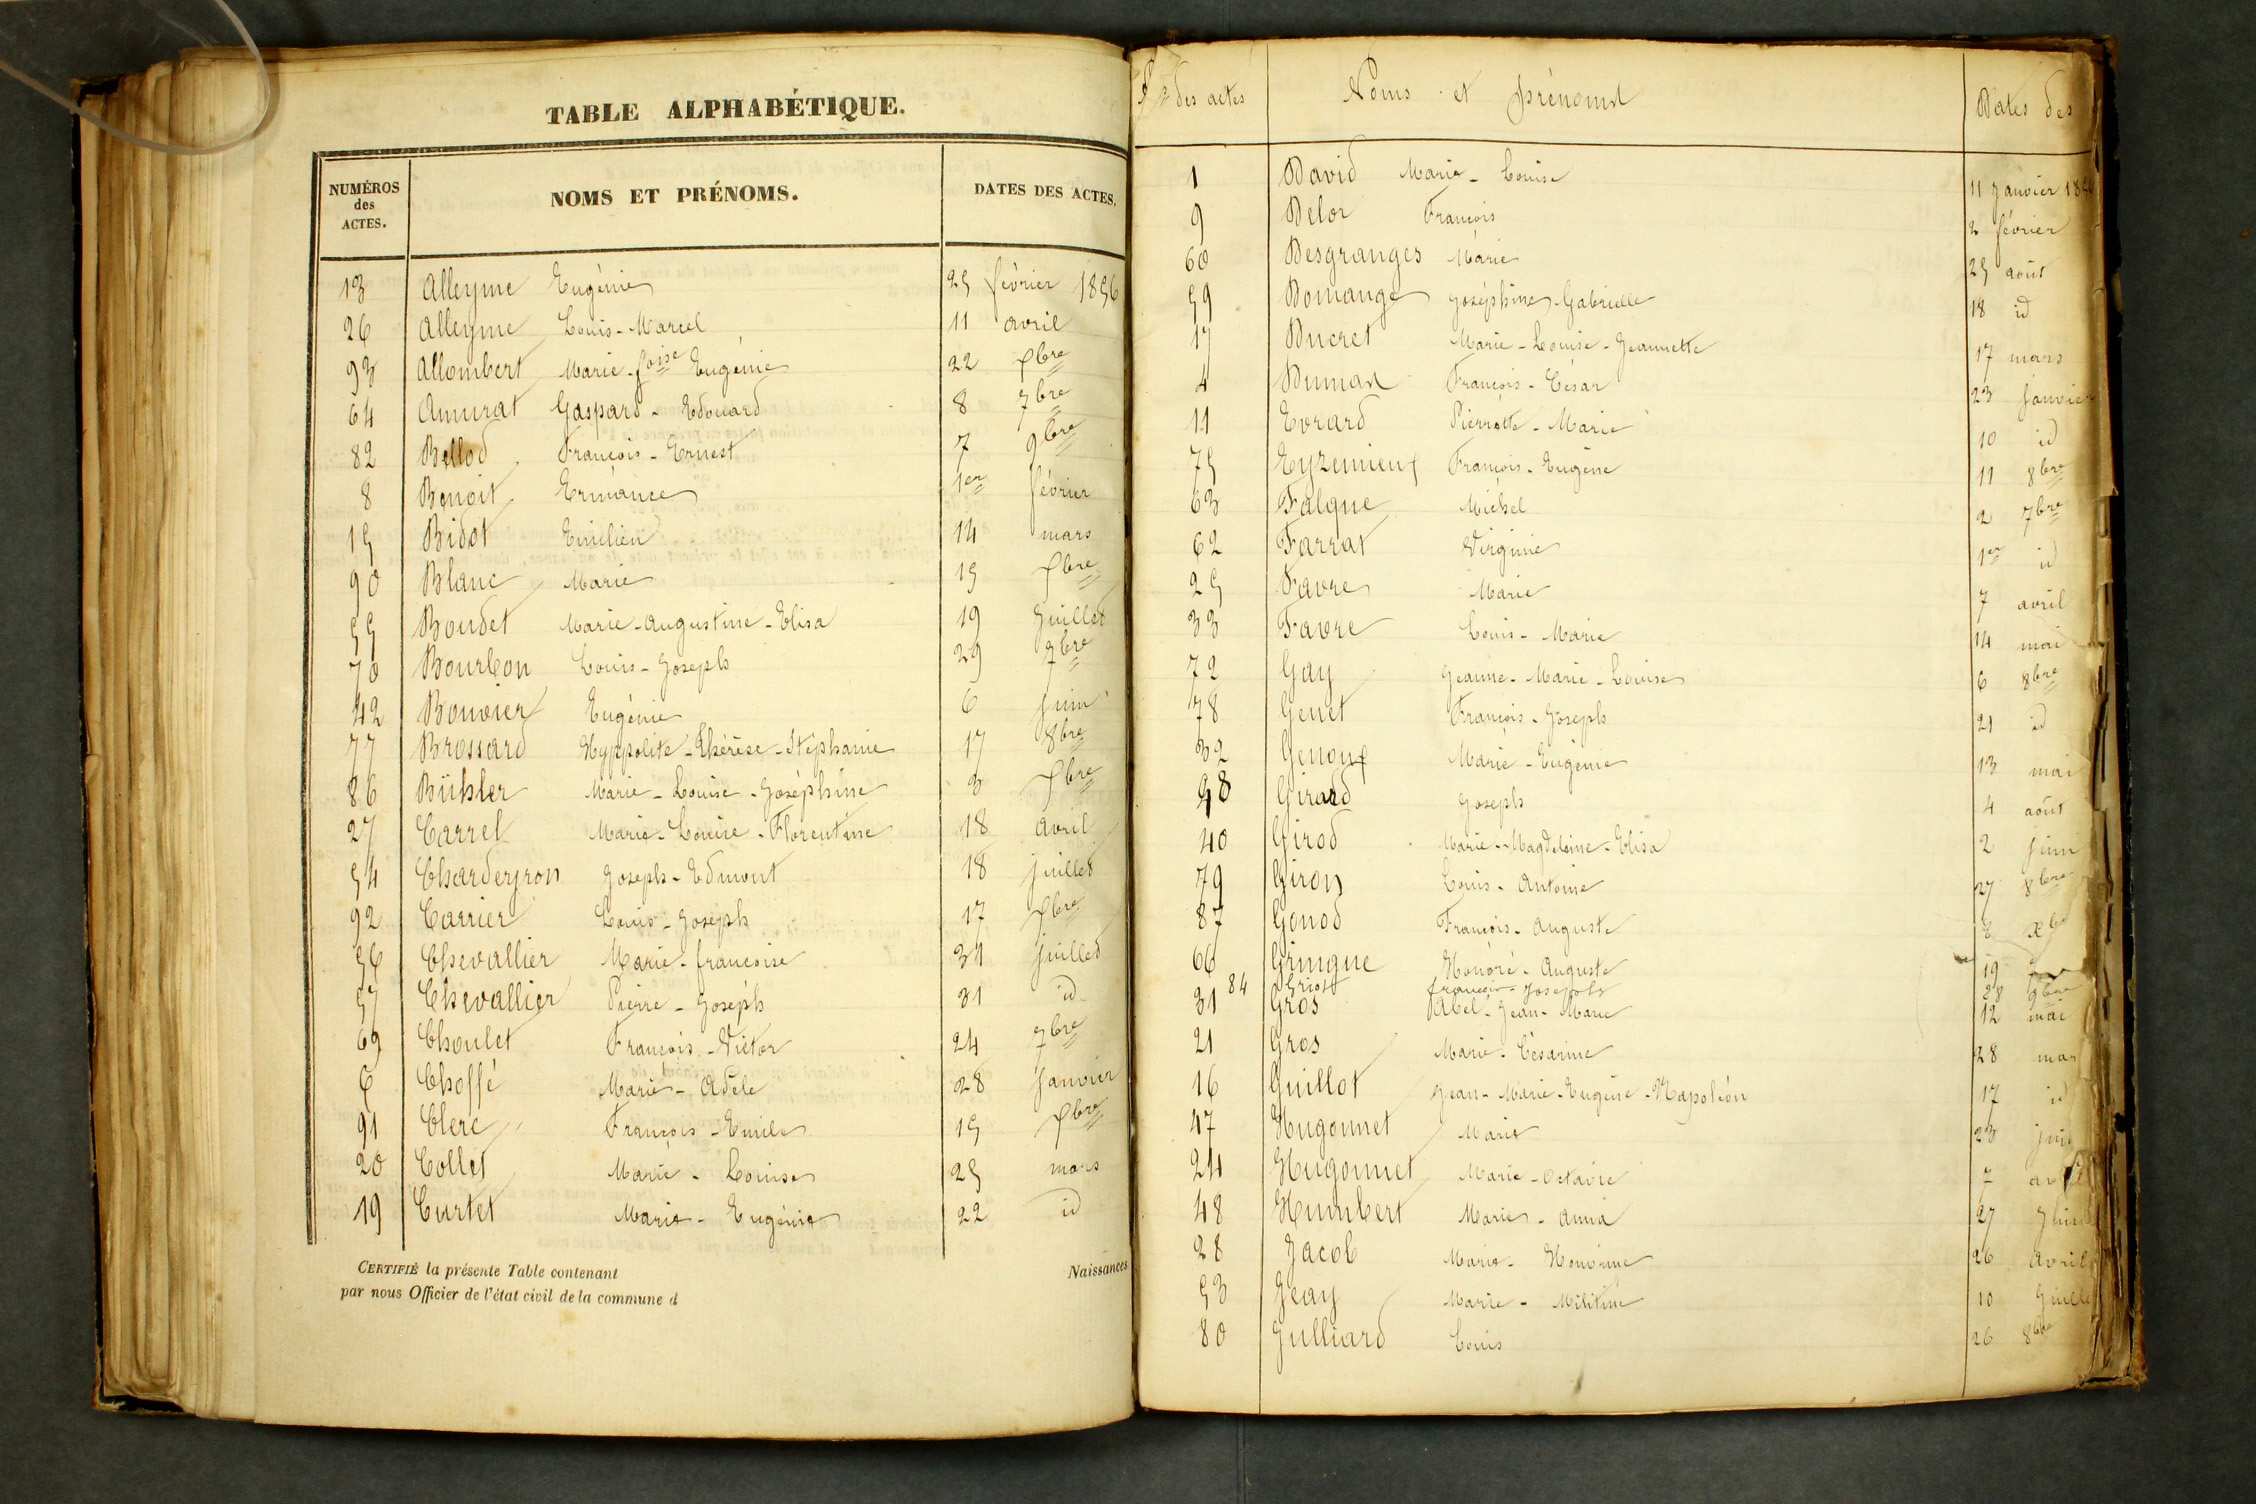 TABLE ALPHABÉTIQUE.
NUMÉROS des ACTES. NOMS ET PRÉNOMS. DATES DES ACTES.
13 Alleyme Eugénie 25 février 1856
26 Alleyme Louis-Marcel 11 avril
93 Allombert Marie-foise Eugénie 22 xbre
64 Amurat Gaspard-Edouard 8 7bre
82 Bellod François-Ernest 7 9bre
8 Benoit Ermance 1er février
15 Bidot Emélien 14 mars
90 Blanc Marie 15 xbre
55 Boudet Marie-Augustine-Elisa 19 Juillet
70 Bourbon Louis-Joseph 29 7bre
42 Bouvier Eugénie 6 juin
77 Brossard Hyppolite-Thérèse-Stéphanie 17 8bre
86 Bühler Marie-Louise-Joséphine 3 xbre
27 Carrel Marie-Louise-Florentine 18 avril
54 Charderjron Joseph-Edmont 18 juillet
92 Carrier Louis-Joseph 17 xbre
56 Chevallier Marie-françoise 31 juillet
57 Chevallier Pierre-Joseph 31 id
69 Choulet François-Victor 24 7bre
6 Choffé Marie-Adèle 28 janvier
91 Clerc François-Emile 15 xbre
20 Collet Marie-Louise 25 mars
19 Curtet Marie-Eugénie 22 id
CERTIFIÉ la présente Table contenant Naissances
par nous Officier de l'état civil de la commune d
Nos des actes Noms et prénoms Dates des
1 David Marie-Louise 11 Janvier 1856
9 Delor François 2 février
60 Desgranges Marie 25 août
59 Domange Joséphine-Gabrielle 18 id
17 Ducret Marie-Louise-Jeannette 17 mars
4 Dumas François-César 23 janvier
11 Evrard Pierrette-Marie 10 id
75 Eyzemieux François-Eugène 11 8bre
63 Falque Michel 2 7bre
62 Farrat Virginie 1er id
25 Favre Marie 7 avril
33 Favre Louis-Marie 14 mai
72 Gay Jeanne-Marie-Louise 6 8bre
78 Genet François-Joseph 21 id
32 Genoux Marie-Eugénie 13 mai
58 Girard Joseph 4 août
40 Girod Marie-Magdeleine-Elisa 2 juin
79 Giron Louis-Antoine 27 8bre
87 Gonod François-Auguste xbr
66 Gringue Honoré-Auguste 19 7bre
84 Griot françois-Joseph 28 9bre
31 Gros Abel-Jean-Marie 12 mai
21 Gros Marie-Césarine 28 mar
16 Guillot Jean-Marie-Eugène-Napoléon 17 id
47 Hugonnet Marie 23 juin
24 Hugonnet Marie-Octavie 7 avril
48 Humbert Marie-Anna 27 Juin
28 Jacob Marie-Honorine 26 avril
53 Jeay Marie-Militine 10 Juille
80 Julliard Louis 26 8bre